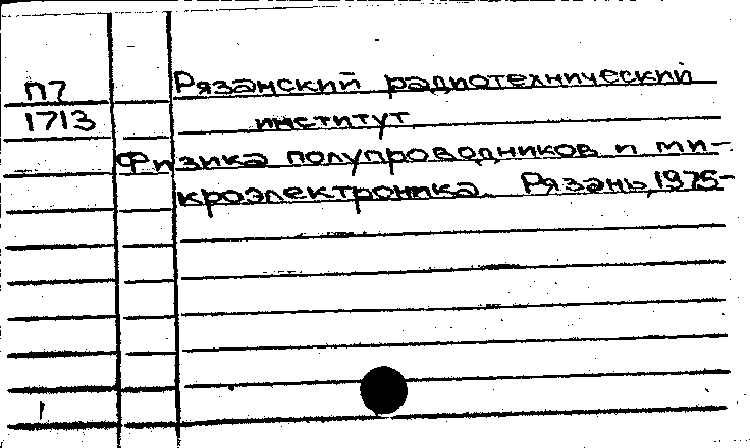 П7 Рязанский радиотехнический
1713 институт
Физика полупроводников и ми-
кроэлектроника. Рязань, 1975-